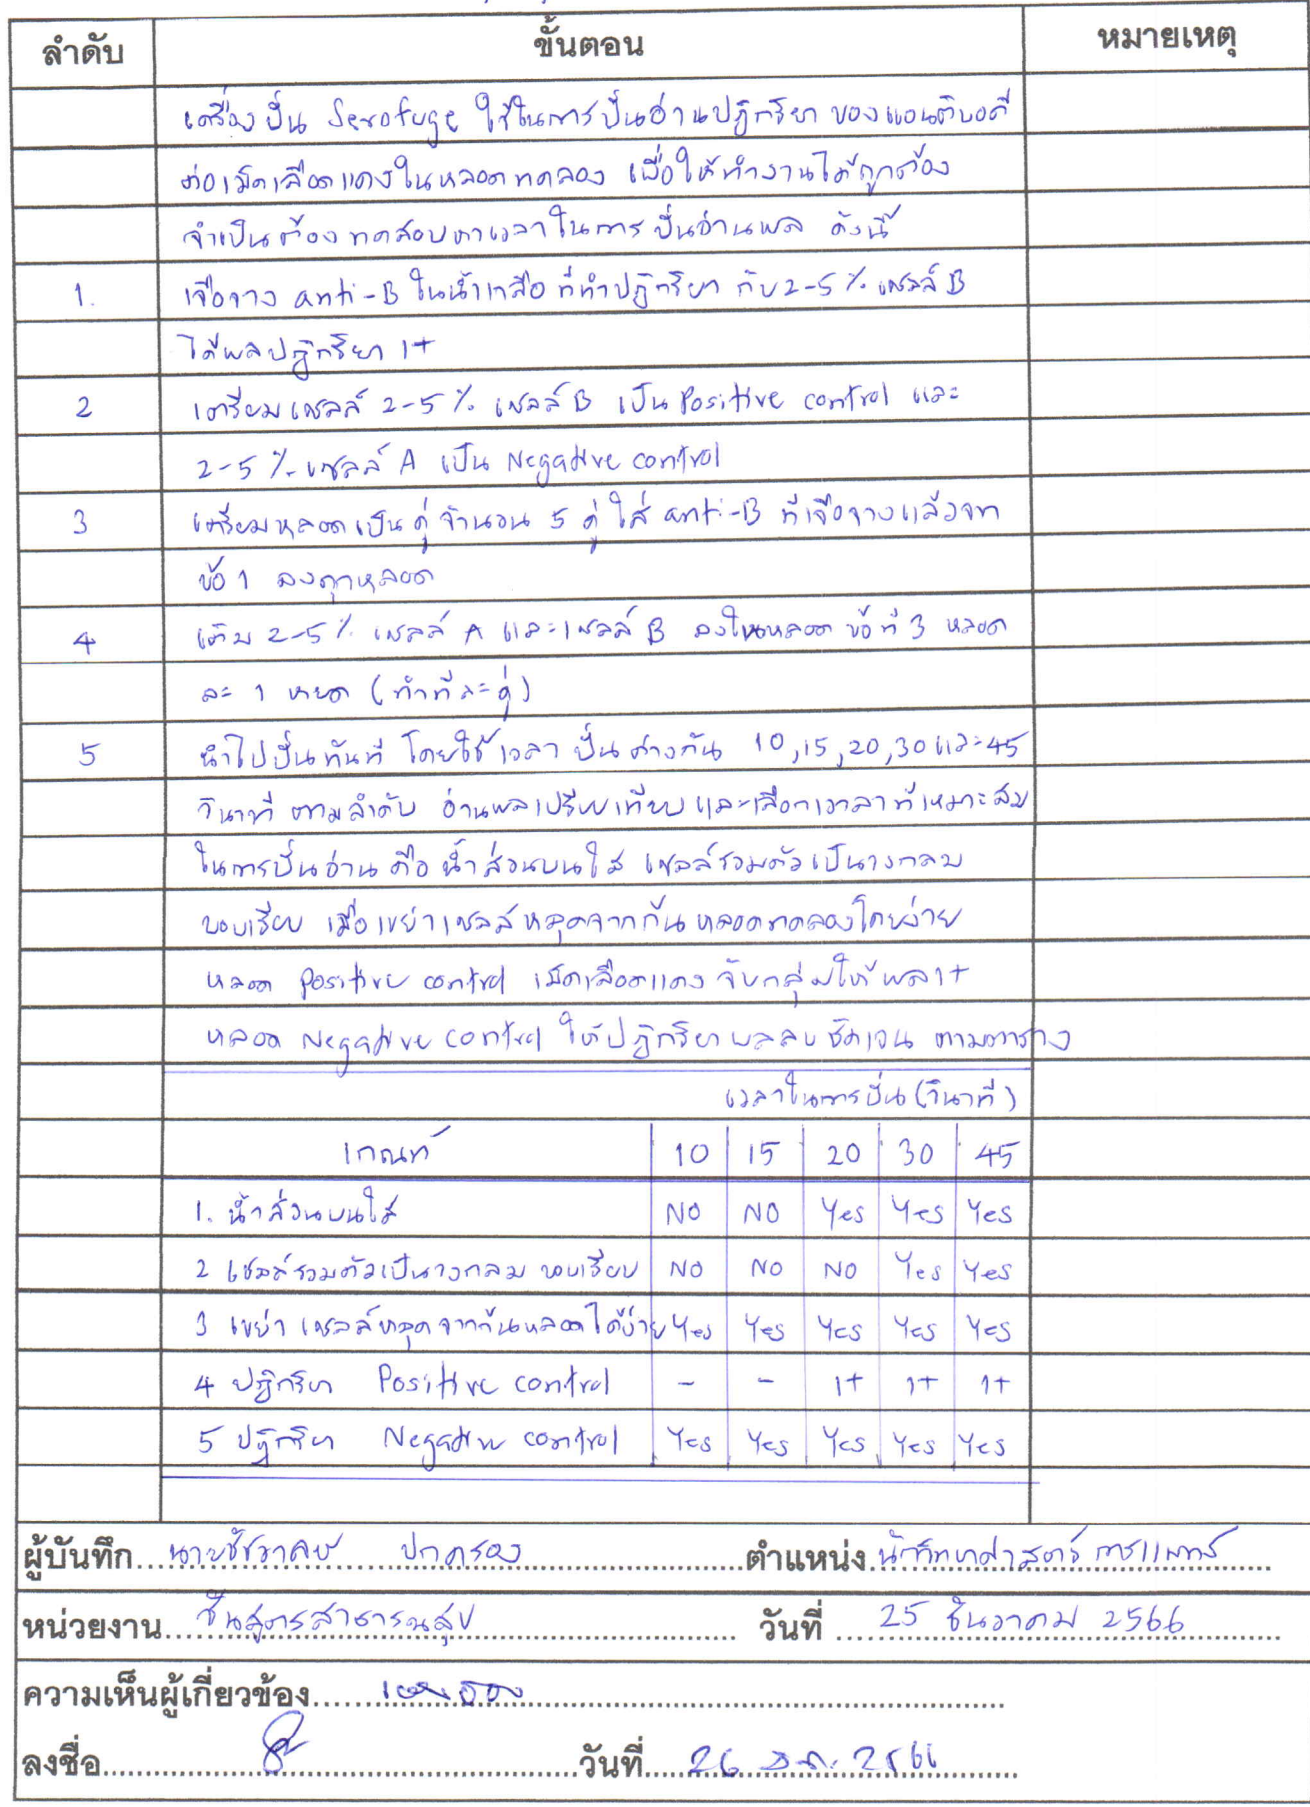 ลำดับ ขั้นตอน หมายเหตุ
เครื่องปั่น Serofuge ใช้ในการปั่นอ่านปฏิกริยา ของแอนติบอดี
ต่อเม็ดเลือดแดงในหลอดทดลอง เพื่อให้ทำงานได้ถูกต้อง
จำเป็นต้องทดสอบหาเวลาในการปั่นอ่านผล ดังนี้
1. เจือจาง anti-B ในน้ำเกลือ ที่ทำปฏิกริยา กับ 2-5 % เซลล์ B
ได้ผลปฏิกริยา 1+
2 เตรียมเซลล์ 2-5 % เซลล์ B เป็น Positive control และ
2-5 % เซลล์ A เป็น Negative control
3 เตรียมหลอดเป็นคู่ จำนวน 5 คู่ ใส่ anti-B ที่เจือจางแล้วจาก
ข้อ 1 ลงทุกหลอด
4 เติม 2-5 % เซลล์ A และเซลล์ B ลงในหลอด ข้อที่ 3 หลอด
ละ 1 หยด (ทำทีละคู่)
5 นำไปปั่นทันที โดยใช้เวลา ปั่นต่างกัน 10, 15, 20, 30 และ 45
วินาที ตามลำดับ อ่านผลเปรียบเทียบ และเลือกเวลาที่เหมาะสม
ในการปั่นอ่าน คือ น้ำส่วนบนใส เซลล์รวมตัวเป็นวงกลม
ขอบเรียบ เมื่อเขย่าเซลล์หลุดจากก้นหลอดทดลองโดยง่าย
หลอด Positive control เม็ดเลือดแดง จับกลุ่มให้ผล 1+
หลอด Negative control ให้ปฏิกริยาผลลบ ชัดเจน ตามตาราง
เวลาในการปั่น (วินาที)
เกณฑ์ 10 15 20 30 45
1. น้ำส่วนบนใส NO NO Yes Yes Yes
2 เซลล์รวมตัวเป็นวงกลม ขอบเรียบ NO NO NO Yes Yes
3 เขย่า เซลล์หลุดจากก้นหลอดได้ง่าย Yes Yes Yes Yes Yes
4 ปฏิกริยา Positive control - - 1+ 1+ 1+
5 ปฏิกริยา Negative control Yes Yes Yes Yes Yes
ผู้บันทึก นายชัชวาลย์ ปกครอง ตำแหน่ง นักวิทยาศาสตร์การแพทย์
หน่วยงาน ชันสูตรสาธารณสุข วันที่ 25 ธันวาคม 2566
ความเห็นผู้เกี่ยวข้อง
ลงชื่อ วันที่ 26 ธ.ค. 2566